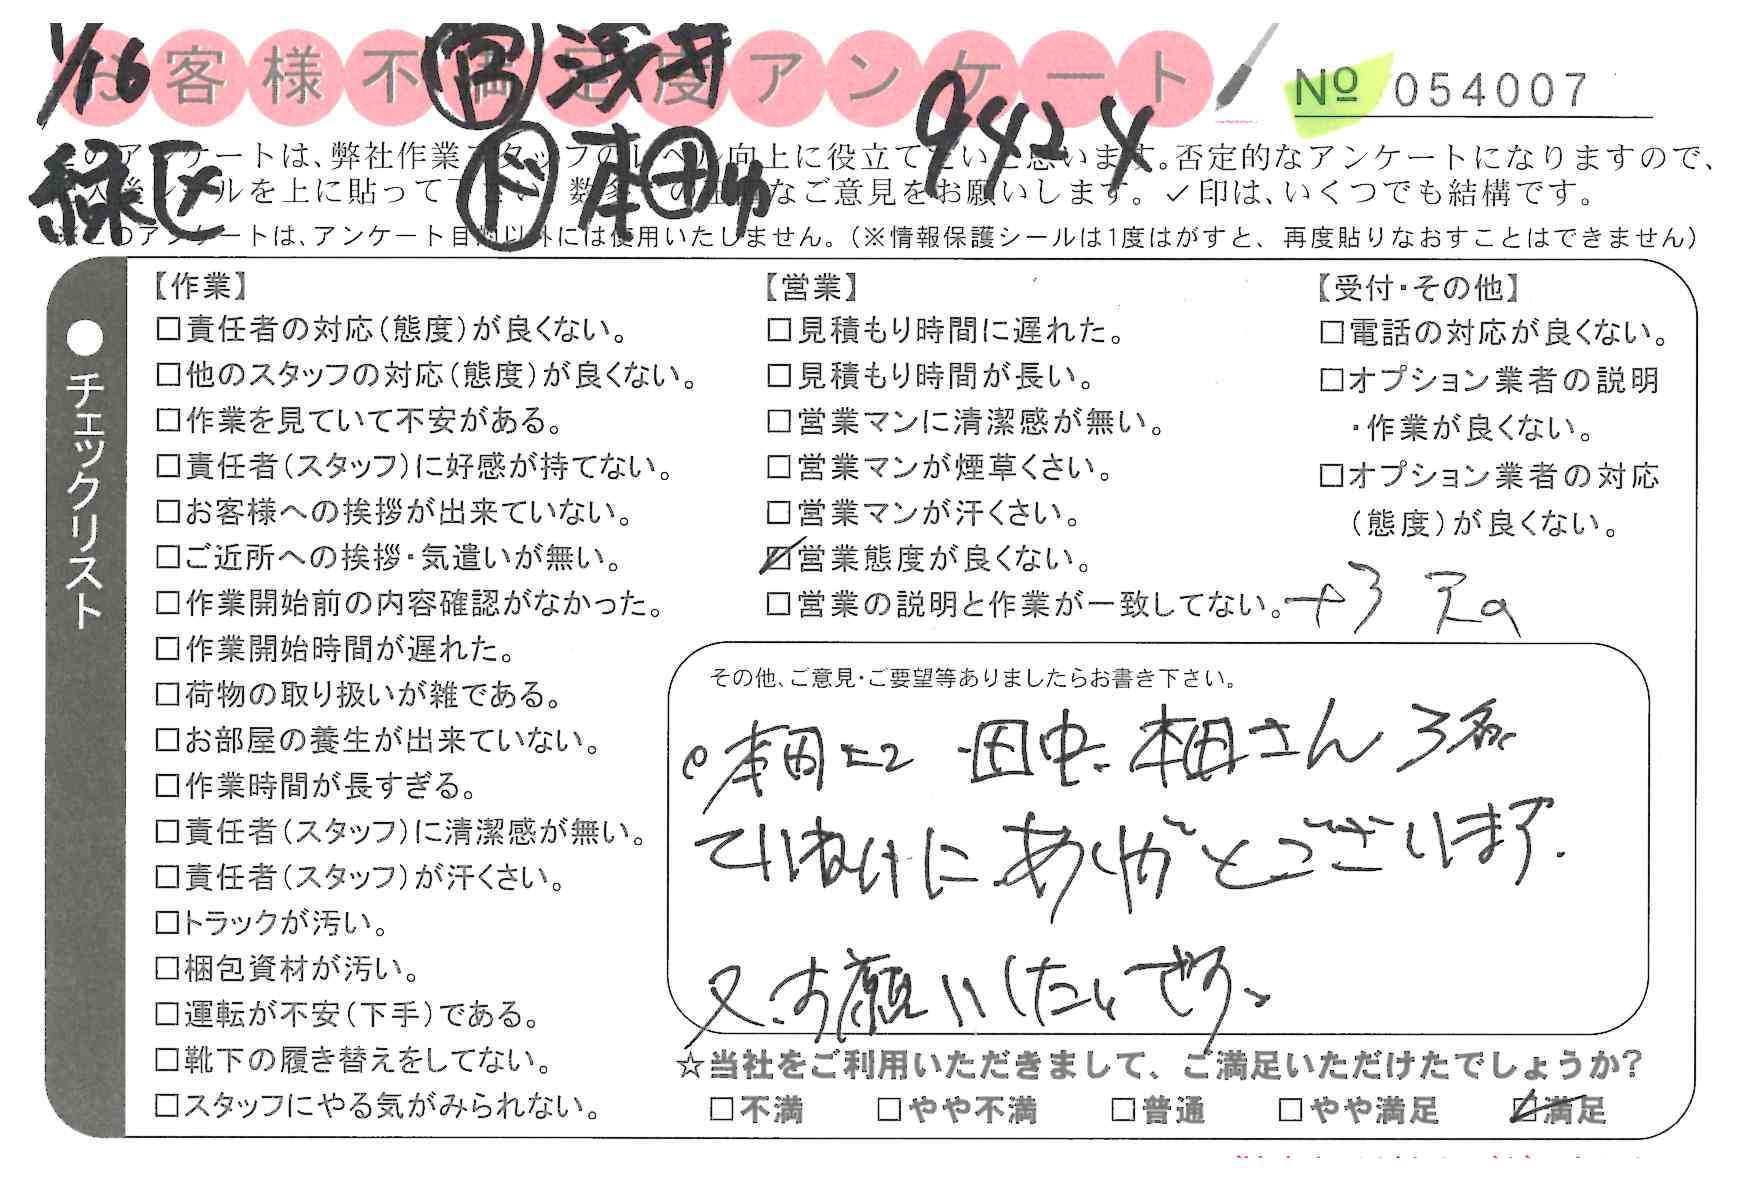 1/16
緑区
営 浅井
ド 本田
9424
お客様不満足度アンケート
Nº 054007
このアンケートは、弊社作業スタッフのレベル向上に役立てたいと思います。否定的なアンケートになりますので、
ご意見をお願いします。✓印は、いくつでも結構です。
※このアンケートは、アンケート目的以外には使用いたしません。(※情報保護シールは1度はがすと、再度貼りなおすことはできません)
●チェックリスト
【作業】
□責任者の対応(態度)が良くない。
□他のスタッフの対応(態度)が良くない。
□作業を見ていて不安がある。
□責任者(スタッフ)に好感が持てない。
□お客様への挨拶が出来ていない。
□ご近所への挨拶・気遣いが無い。
□作業開始前の内容確認がなかった。
□作業開始時間が遅れた。
□荷物の取り扱いが雑である。
□お部屋の養生が出来ていない。
□作業時間が長すぎる。
□責任者(スタッフ)に清潔感が無い。
□責任者(スタッフ)が汗くさい。
□トラックが汚い。
□梱包資材が汚い。
□運転が不安(下手)である。
□靴下の履き替えをしてない。
□スタッフにやる気がみられない。
【営業】
□見積もり時間に遅れた。
□見積もり時間が長い。
□営業マンに清潔感が無い。
□営業マンが煙草くさい。
□営業マンが汗くさい。
☑営業態度が良くない。
□営業の説明と作業が一致してない。
【受付・その他】
□電話の対応が良くない。
□オプション業者の説明
・作業が良くない。
□オプション業者の対応
(態度)が良くない。
その他、ご意見・ご要望等ありましたらお書き下さい。
本田さん 3名
ていねいに ありがとうございます.
又、お願いしたいです。
☆当社をご利用いただきまして、ご満足いただけたでしょうか?
□不満 □やや不満 □普通 □やや満足 ☑満足